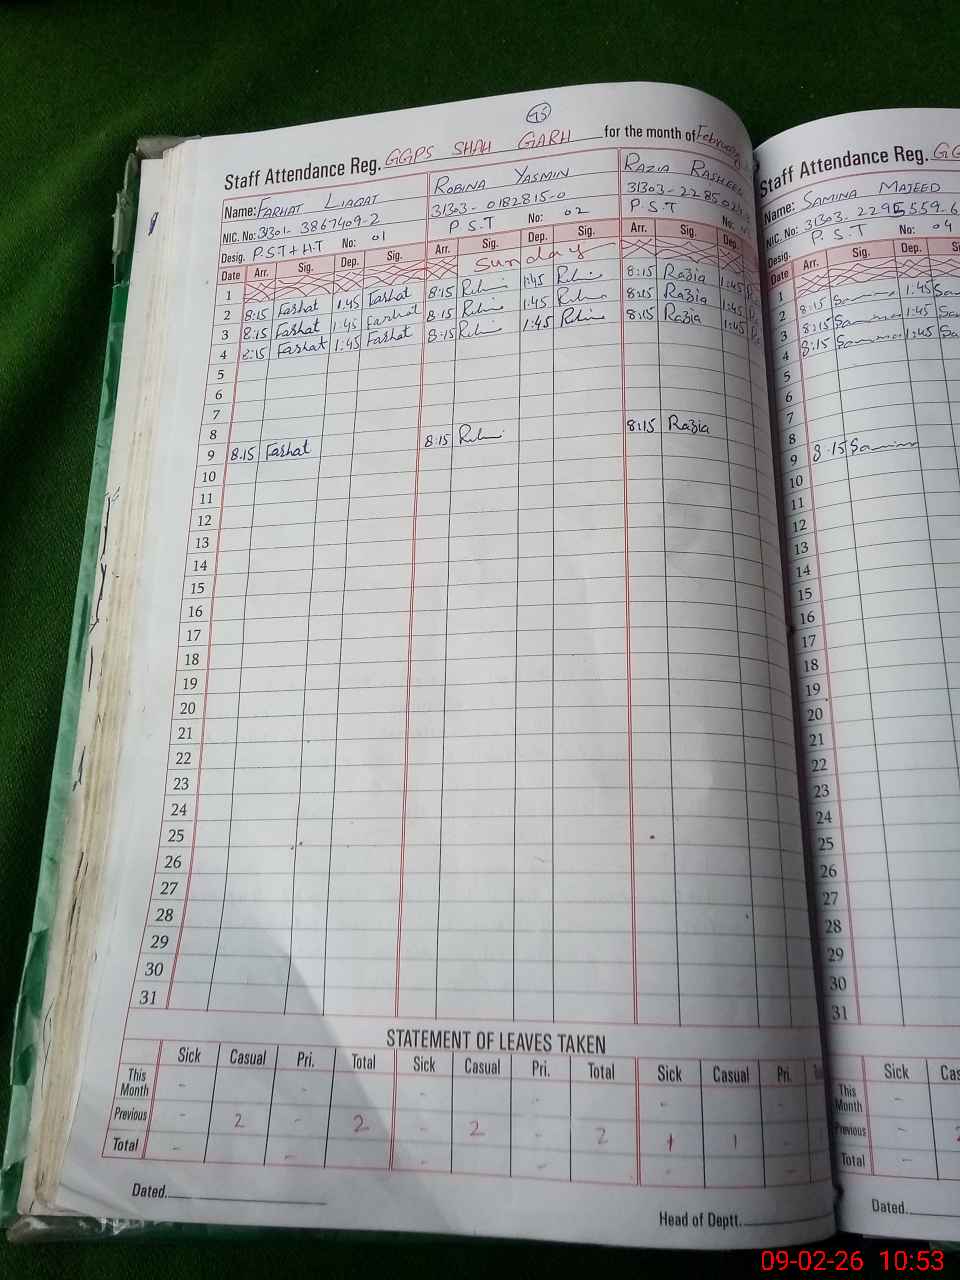 Staff Attendance Reg. GGPS SHAH GARH for the month of February
Name: FARHAT LIAQAT ROBINA YASMIN RAZIA RASHEED
NIC. No: 31301-3867409-2 31303-0182815-0 31303-2285024
Desig. P.S.T + H.T No: 01 P S T No: 02 P.S.T No:
Date Arr. Sig. Dep. Sig. Arr. Sig. Dep. Sig. Arr. Sig. Dep.
1 Sunday
2 8:15 Farhat 1:45 Farhat 8:15 1:45 8:15 Razia 1:45
3 8:15 Farhat 1:45 Farhat 8:15 1:45 8:15 Razia 1:45
4 8:15 Farhat 1:45 Farhat 8:15 1:45 8:15 Razia 1:45
5
6
7
8
9 8:15 Farhat 8:15 8:15 Razia
10
11
12
13
14
15
16
17
18
19
20
21
22
23
24
25
26
27
28
29
30
31
STATEMENT OF LEAVES TAKEN
Sick Casual Pri. Total Sick Casual Pri. Total Sick Casual Pri.
This Month - - - - - -
Previous - 2 - 2 - 2 - 2 1 1 -
Total - - - - -
Dated.
Head of Deptt.
Staff Attendance Reg.
Name: SAMINA MAJEED
NIC. No: 31303-2295559-6
Desig. P. S. T No: 04
Date Arr. Sig. Dep.
1
2 8:15 1:45
3 8:15 1:45
4 8:15 1:45
5
6
7
8
9 8:15
10
11
12
13
14
15
16
17
18
19
20
21
22
23
24
25
26
27
28
29
30
31
Sick
This Month -
Previous -
Total -
Dated.
09-02-26 10:53